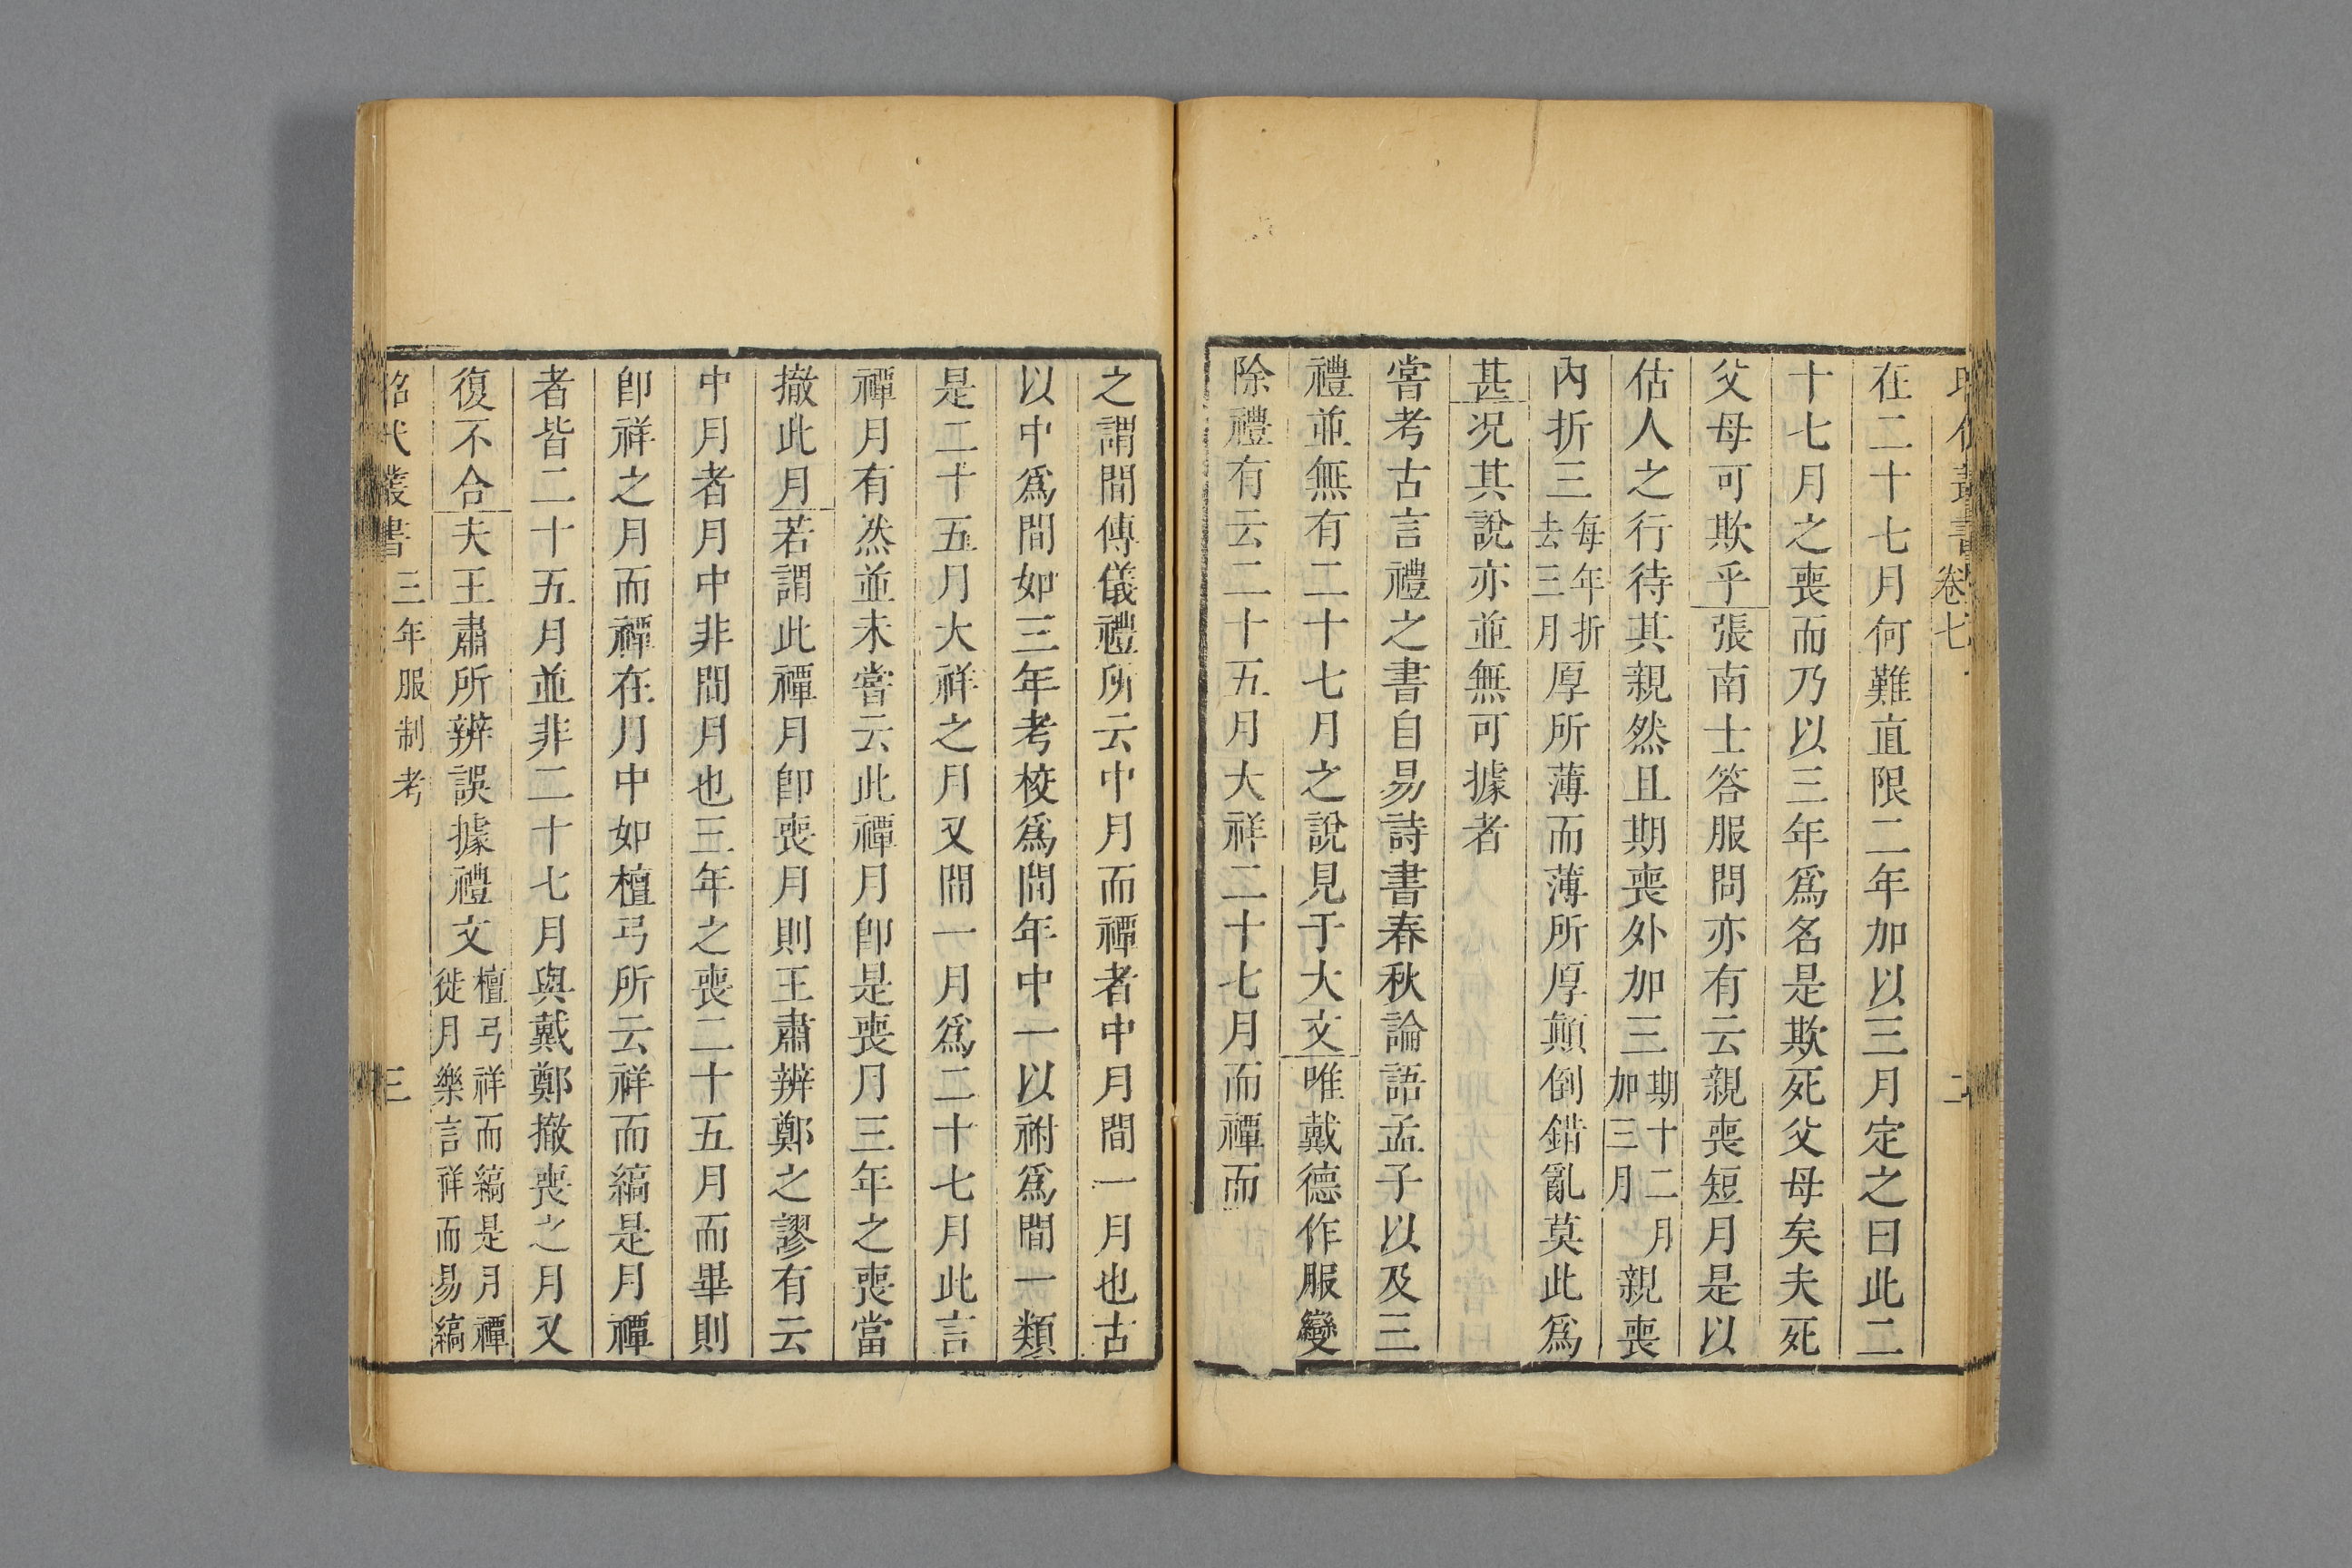 昭代叢書 卷七 二
在二十七月何難直限二年加以三月定之曰此二
十七月之喪而乃以三年爲名是欺死父母矣夫死
父母可欺乎張南士答服問亦有云親喪短月是以
估人之行待其親然且期喪外加三期十二月加三月親喪
內折三每年折去三月厚所薄而薄所厚顛倒錯亂莫此爲
甚况其說亦並無可據者
嘗考古言禮之書自易詩書春秋論語孟子以及三
禮並無有二十七月之說見于大文唯戴德作服變
除禮有云二十五月大祥二十七月而禫而
之謂間傳儀禮所云中月而禫者中月間一月也古
以中爲間如三年考校爲間年中一以祔爲間一類
是二十五月大祥之月又間一月爲二十七月此言
禫月有然並未嘗云此禫月卽是喪月三年之喪當
撤此月若謂此禫月卽喪月則王肅辨鄭之謬有云
中月者月中非間月也三年之喪二十五月而畢則
卽祥之月而禫在月中如檀弓所云祥而縞是月禫
者皆二十五月並非二十七月與戴鄭撤喪之月又
復不合夫王肅所辨誤據禮文檀弓祥而縞是月禫徙月樂言祥而易縞
昭代叢書 三年服制考 三